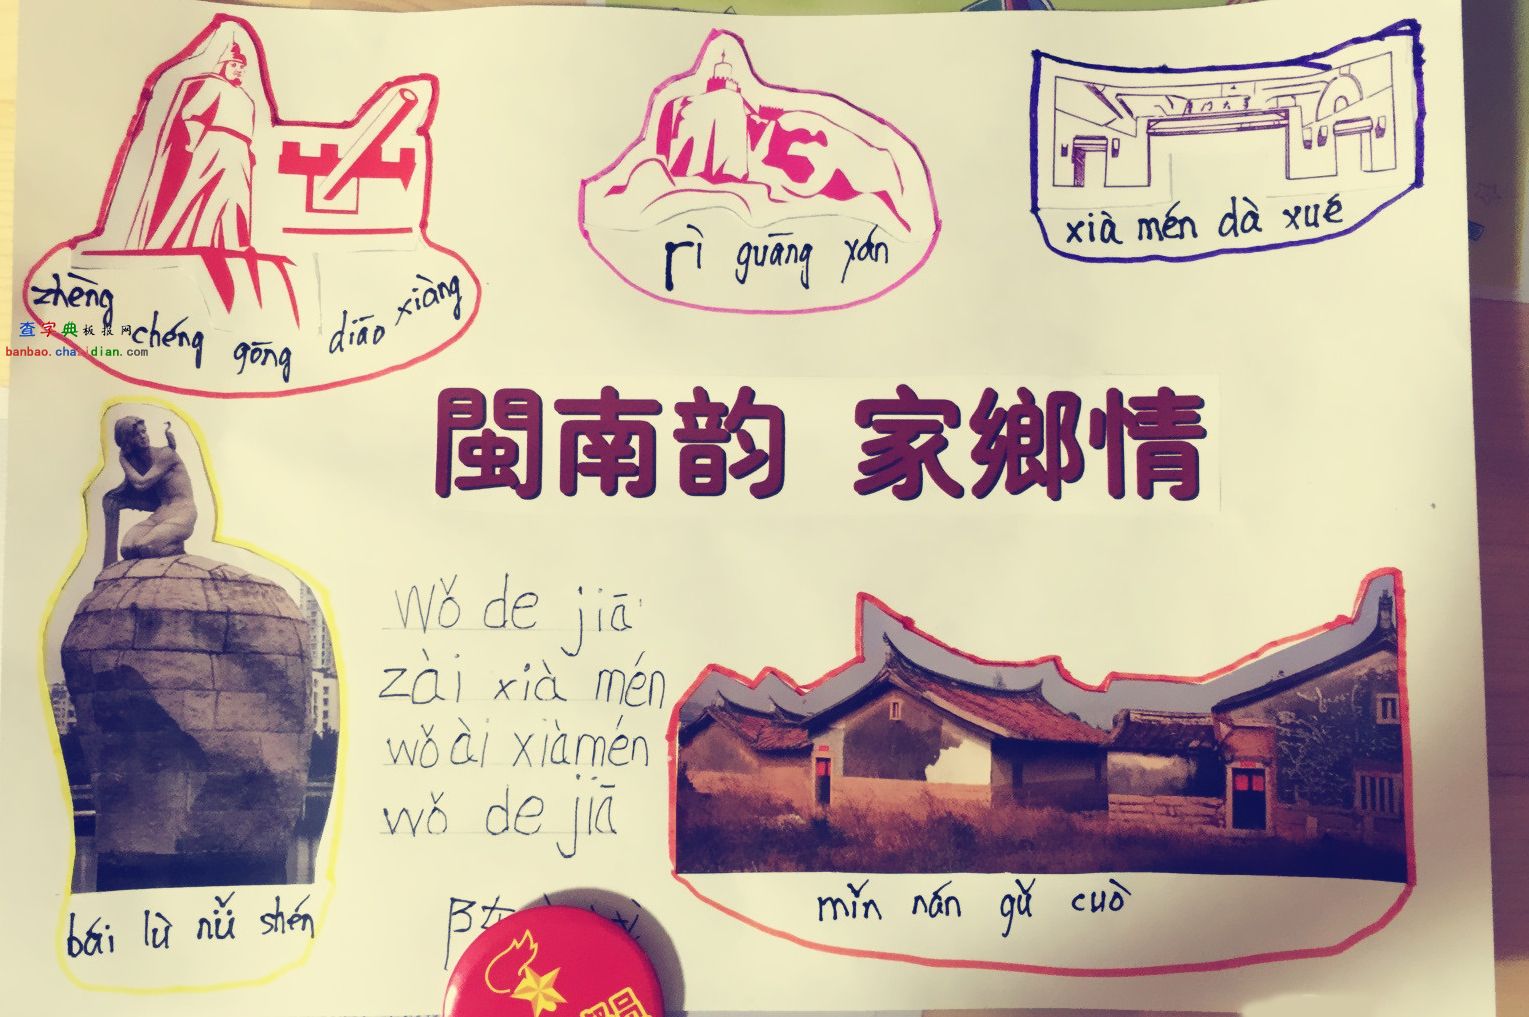 厦门大学
xià mén dà xué
rì guāng yán
zhèng chéng gōng diāo xiàng
查字典板报网
banbao.chazidian.com
閩南韵 家鄉情
wǒ de jiā
zài xià mén
wǒ ài xiàmén
wǒ de jiā
bái lù nǚ shén
mǐn nán gǔ cuò